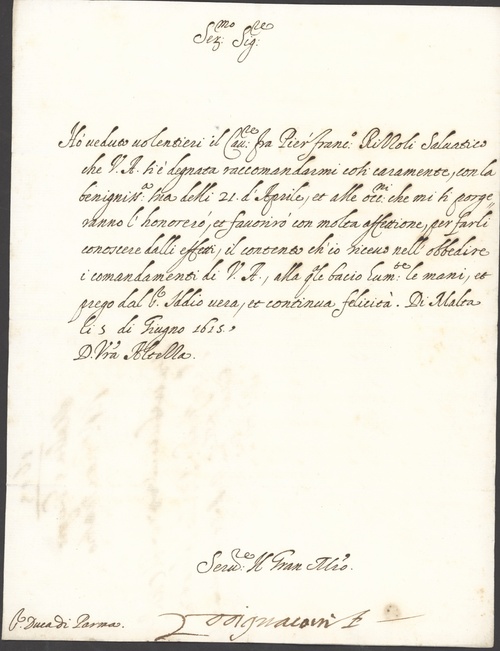 Ser.mo Sig.re
Hò veduto volentieri il Cau.re fra Pier franc.o Salvatico
che V. A. s'è degnata raccomandarmi così caramente, con la
benigniss.a sua delli 21. d'Aprile, et alle occ.ni che mi si porge=
ranno l'honorerò, et favorirò con molta affettione, per farli
conoscere dalli effetti, il contento ch'io riceuo nell'obbedire
i comandamenti di V. A., alla q.le bacio hum.te le mani, et
prego dal S.r Iddio vera, et continua felicità. Di Malta
li 5 di Giugno 1615.
D. Vrã Altezza.
Seru.re Il Gran M.ro
S.r Duca di Parma.